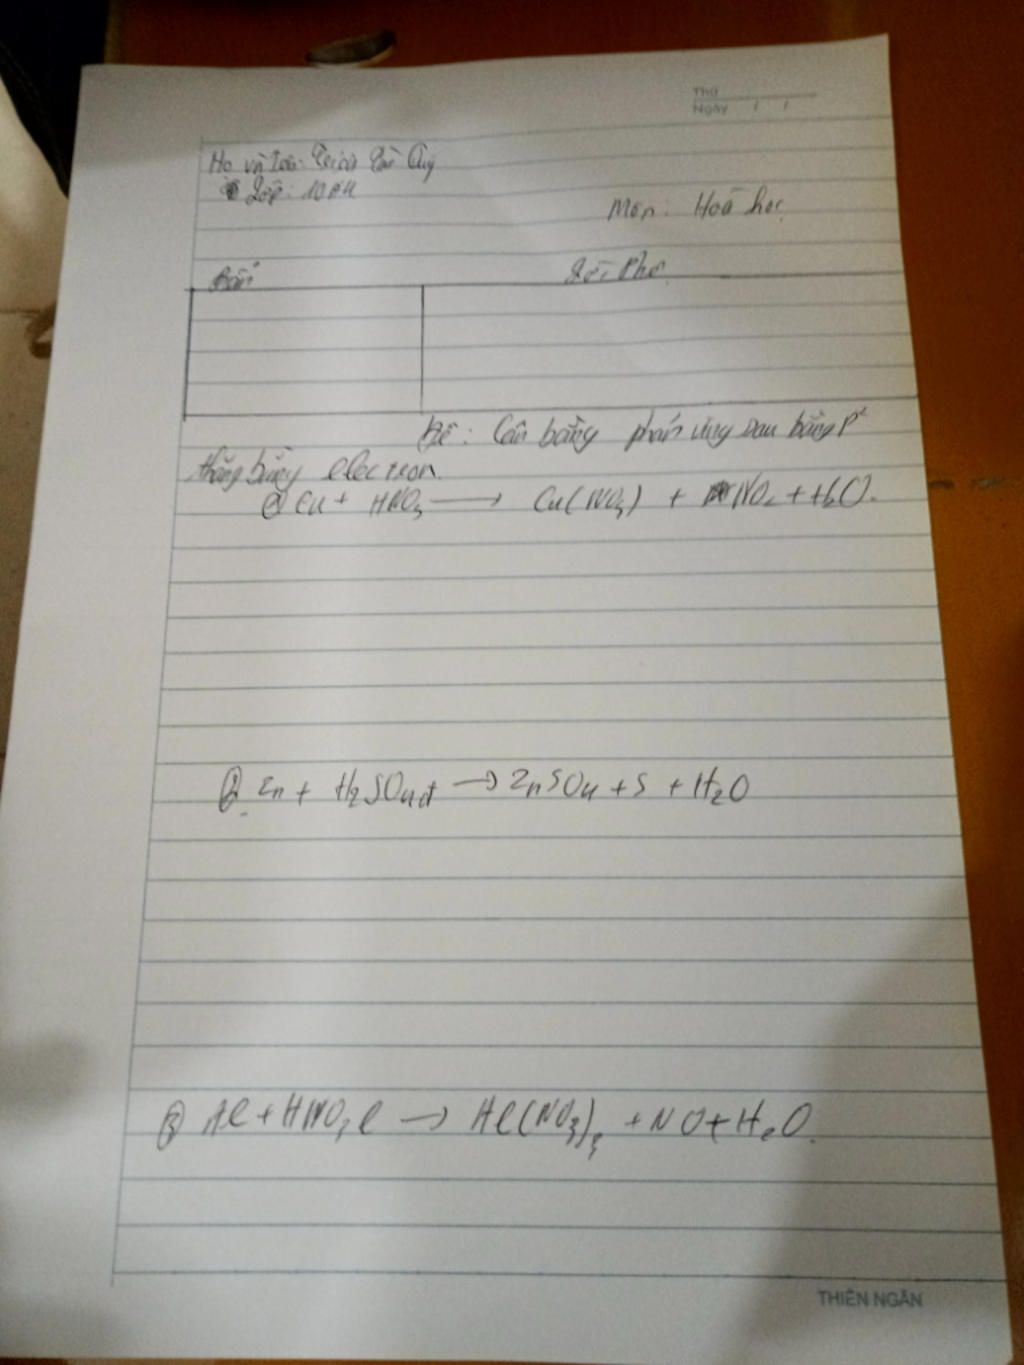 Thứ
Ngày / /
Họ và Tên: Quý
Lớp: 10
Môn: Hoá học
Điểm Lời Phê
Đề: Cân bằng phản ứng sau bằng P²
thăng bằng electron.
① Cu + HNO₃ ⟶ Cu(NO₃) + NO₂ + H₂O.
② Zn + H₂SO₄đ ⟶ ZnSO₄ + S + H₂O
③ Al + HNO₃l ⟶ Al(NO₃)₃ + NO + H₂O.
THIÊN NGÂN